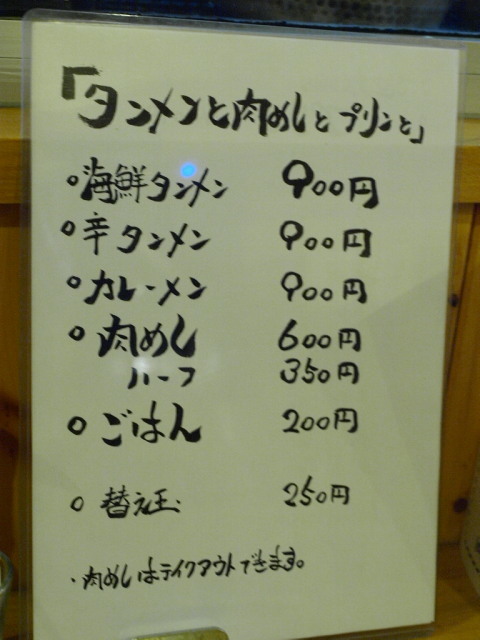 「タンメンと肉めしとプリンと」
○海鮮タンメン 900円
○辛タンメン 900円
○カレーメン 900円
○肉めし 600円
ハーフ 350円
○ごはん 200円
○替え玉 250円
・肉めしはテイクアウトできます。